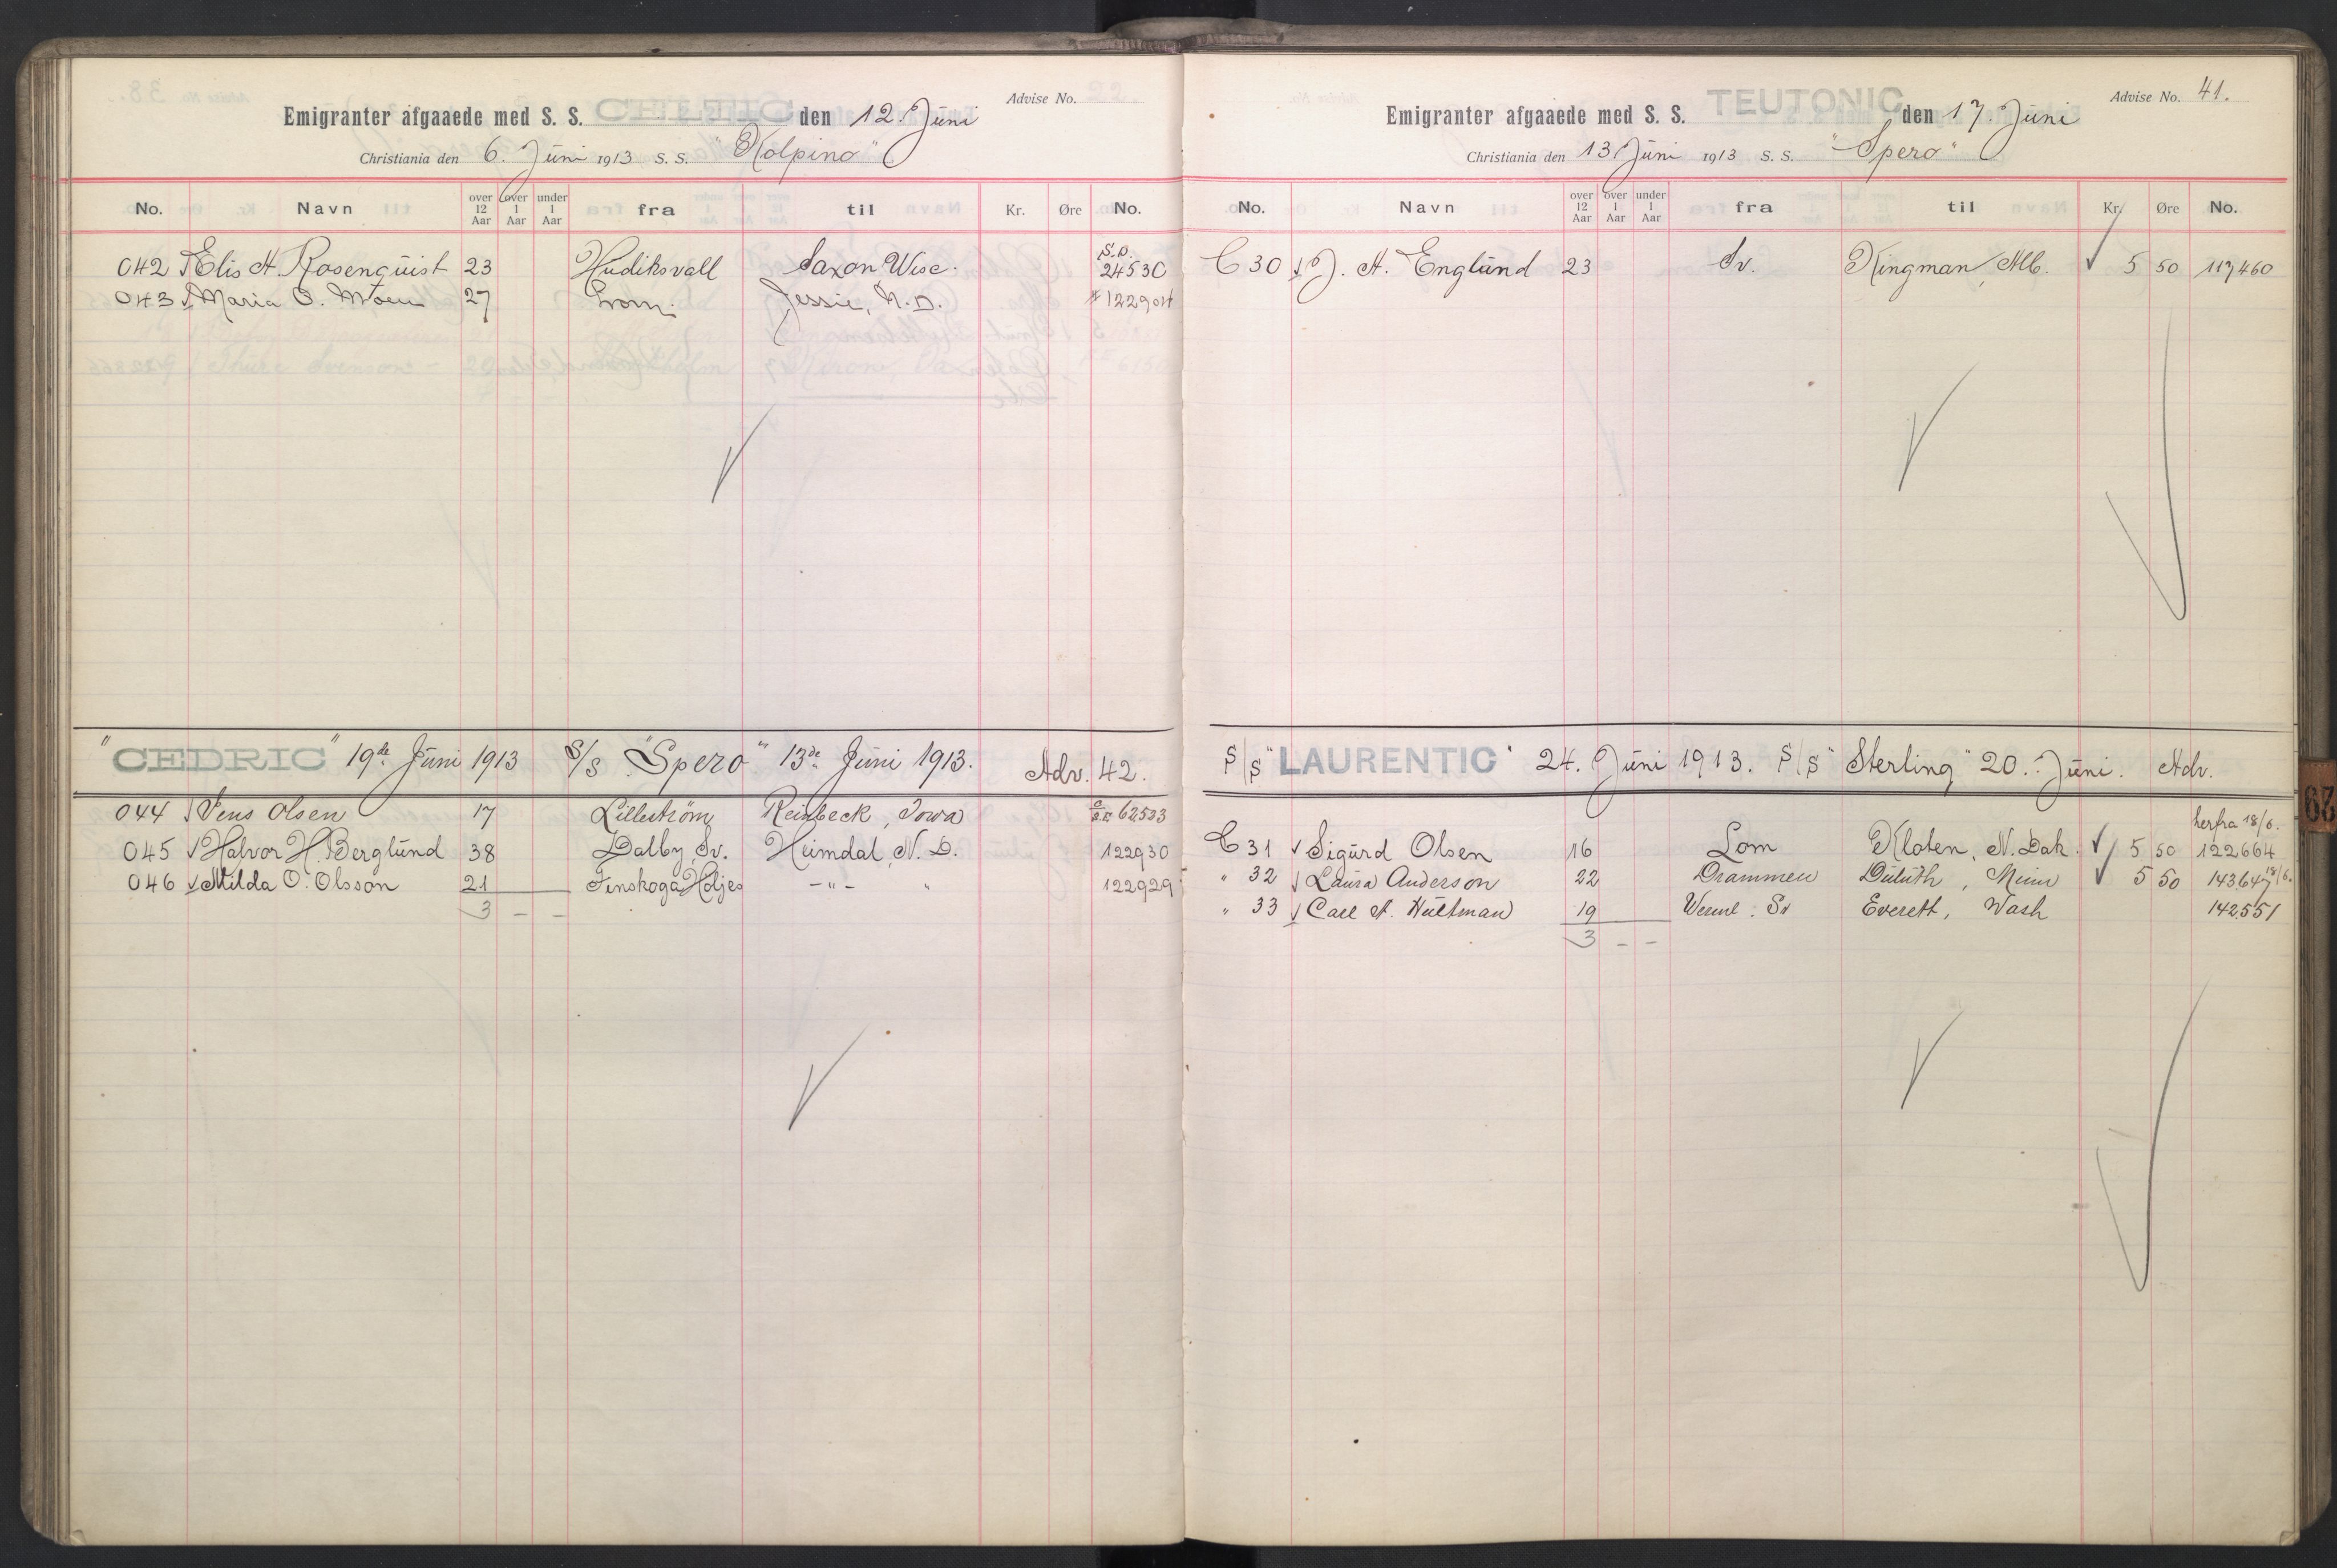 Advise No.
Emigranter afgaaede med S. S. CELTIC den 12. Juni
Christiania den 6. Juni 1913 S. S. "Kolpino"
No. Navn over 12 Aar over 1 Aar under 1 Aar fra til Kr. Øre No.
S.O.
042 Elis A. Rosenquist 23 Hudiksvall Saxon Wisc. 24530
043 Maria O. Moen 27 Lom. Jessie, N.D.
"CEDRIC" 19de Juni 1913 S/S "Spero" 13de Juni 1913. Adv. 42.
044 Jens Olsen 17 Lillestrøm Reinbeck, Iowa 62533
045 Halvor H. Berglund 38 Dalby, Sv. Heimdal, N. D. 122930
046 Milda O. Olsson 21 Finskoga Holjes -"- " 122929
3 - -
Advise No. 41.
Emigranter afgaaede med S. S. TEUTONIC den 17. Juni
Christiania den 13. Juni 1913 S. S. "Spero"
No. Navn over 12 Aar over 1 Aar under 1 Aar fra til Kr. Øre No.
C 30 J. A. Englund 23 Sv. Kingman, Alb. 5 50 117460
S/S "LAURENTIC" 24. Juni 1913. S/S "Sterling" 20. Juni. Adv.
herfra 18/6.
C 31 Sigurd Olsen 16 Lom Kloten, N. Dak. 5 50 122664
" 32 Laura Anderson 22 Drammen Duluth, Minn 5 50 143647 18/6.
" 33 Carl A. Hultman 19 Werml. Sv Everett, Wash 142551
3 - -